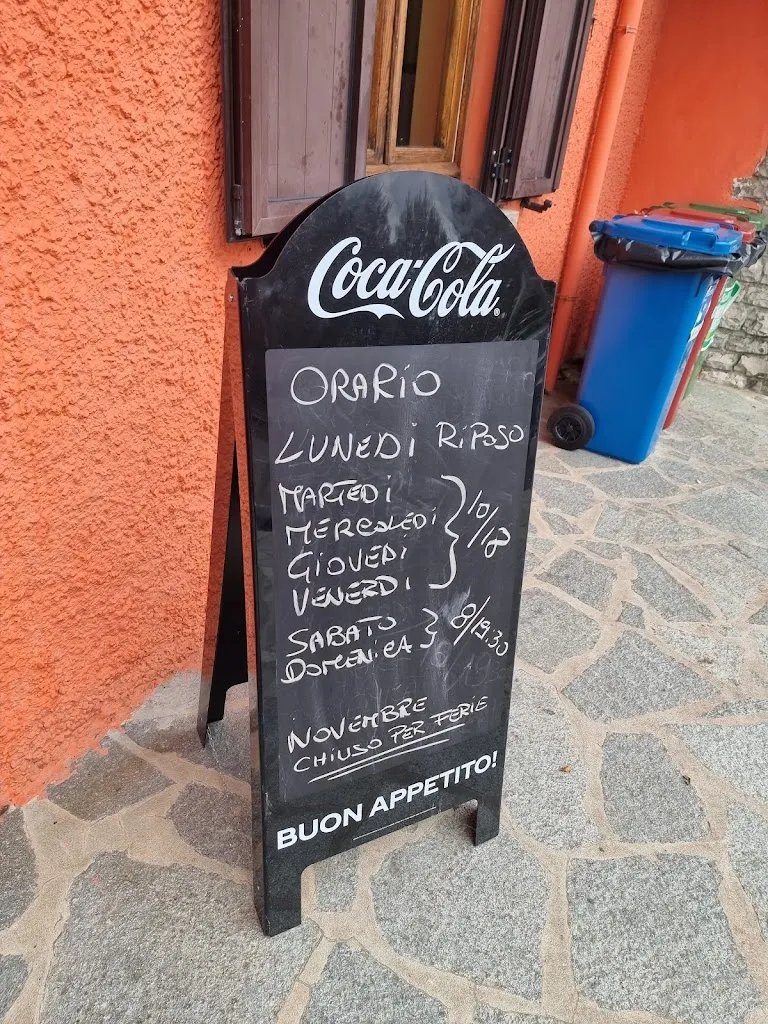 Coca-Cola
ORARIO
LUNEDI RIPOSO
MARTEDI
MERCOLEDI
GIOVEDI
VENERDI
} 10/18
SABATO
DOMENICA
} 8/19.30
NOVEMBRE
CHIUSO PER FERIE
BUON APPETITO!